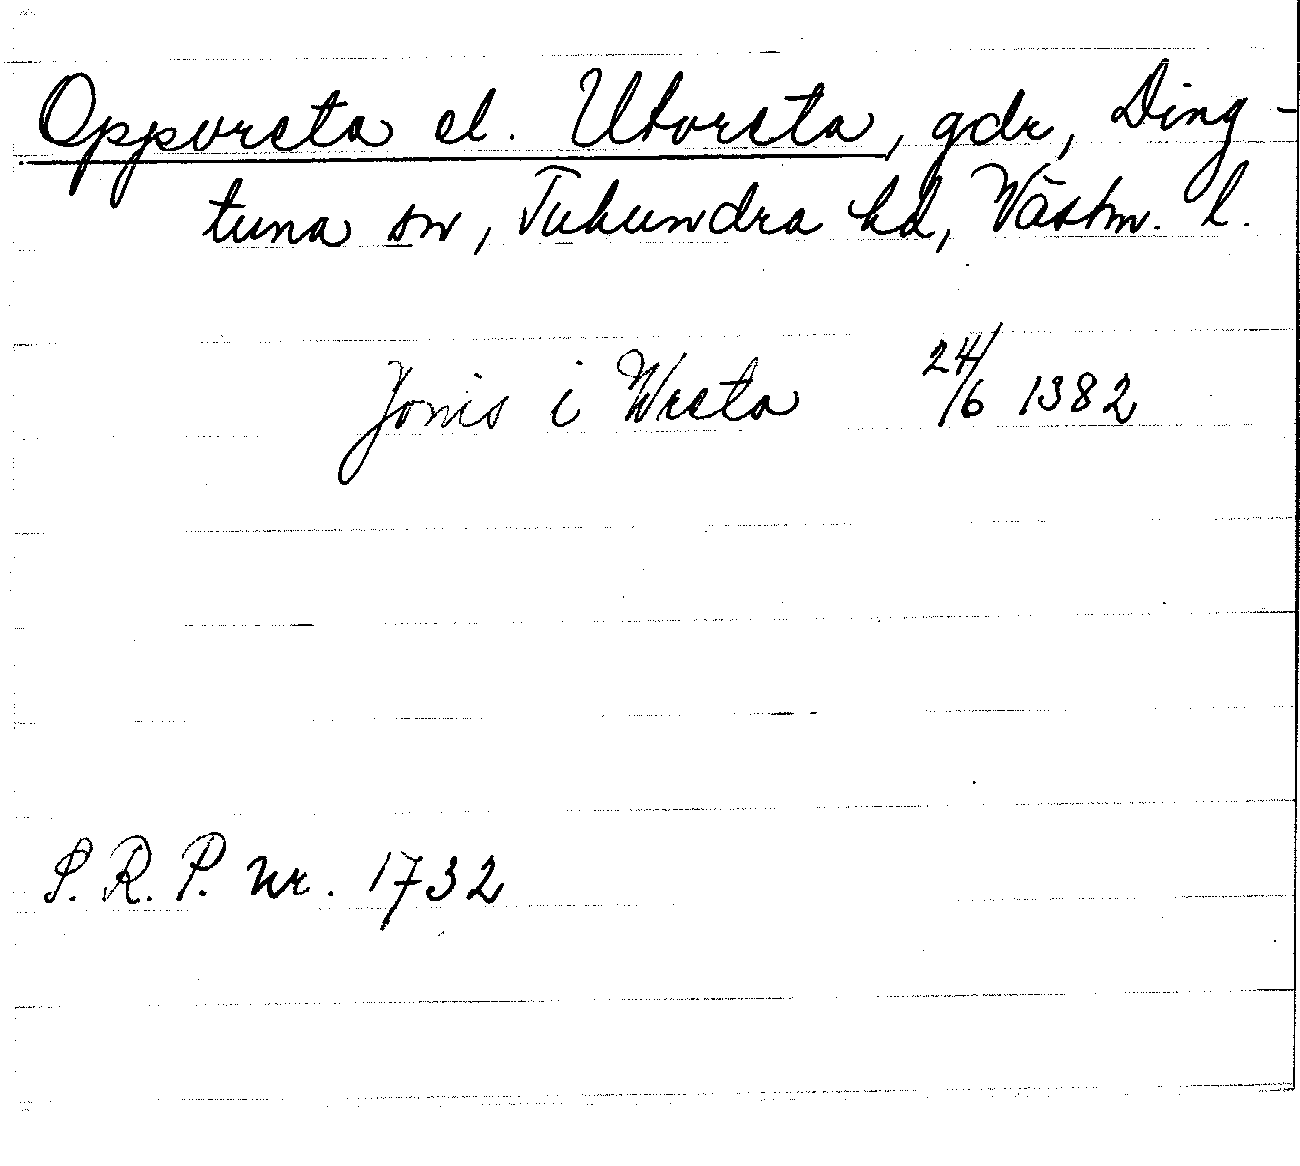 Oppvreta el. Utvreta, gdr, Ding-
tuna sn, Tuhundra hd, Västm. l.
Jonis i Wreta 24/6 1382
S. R. P. nr. 1732